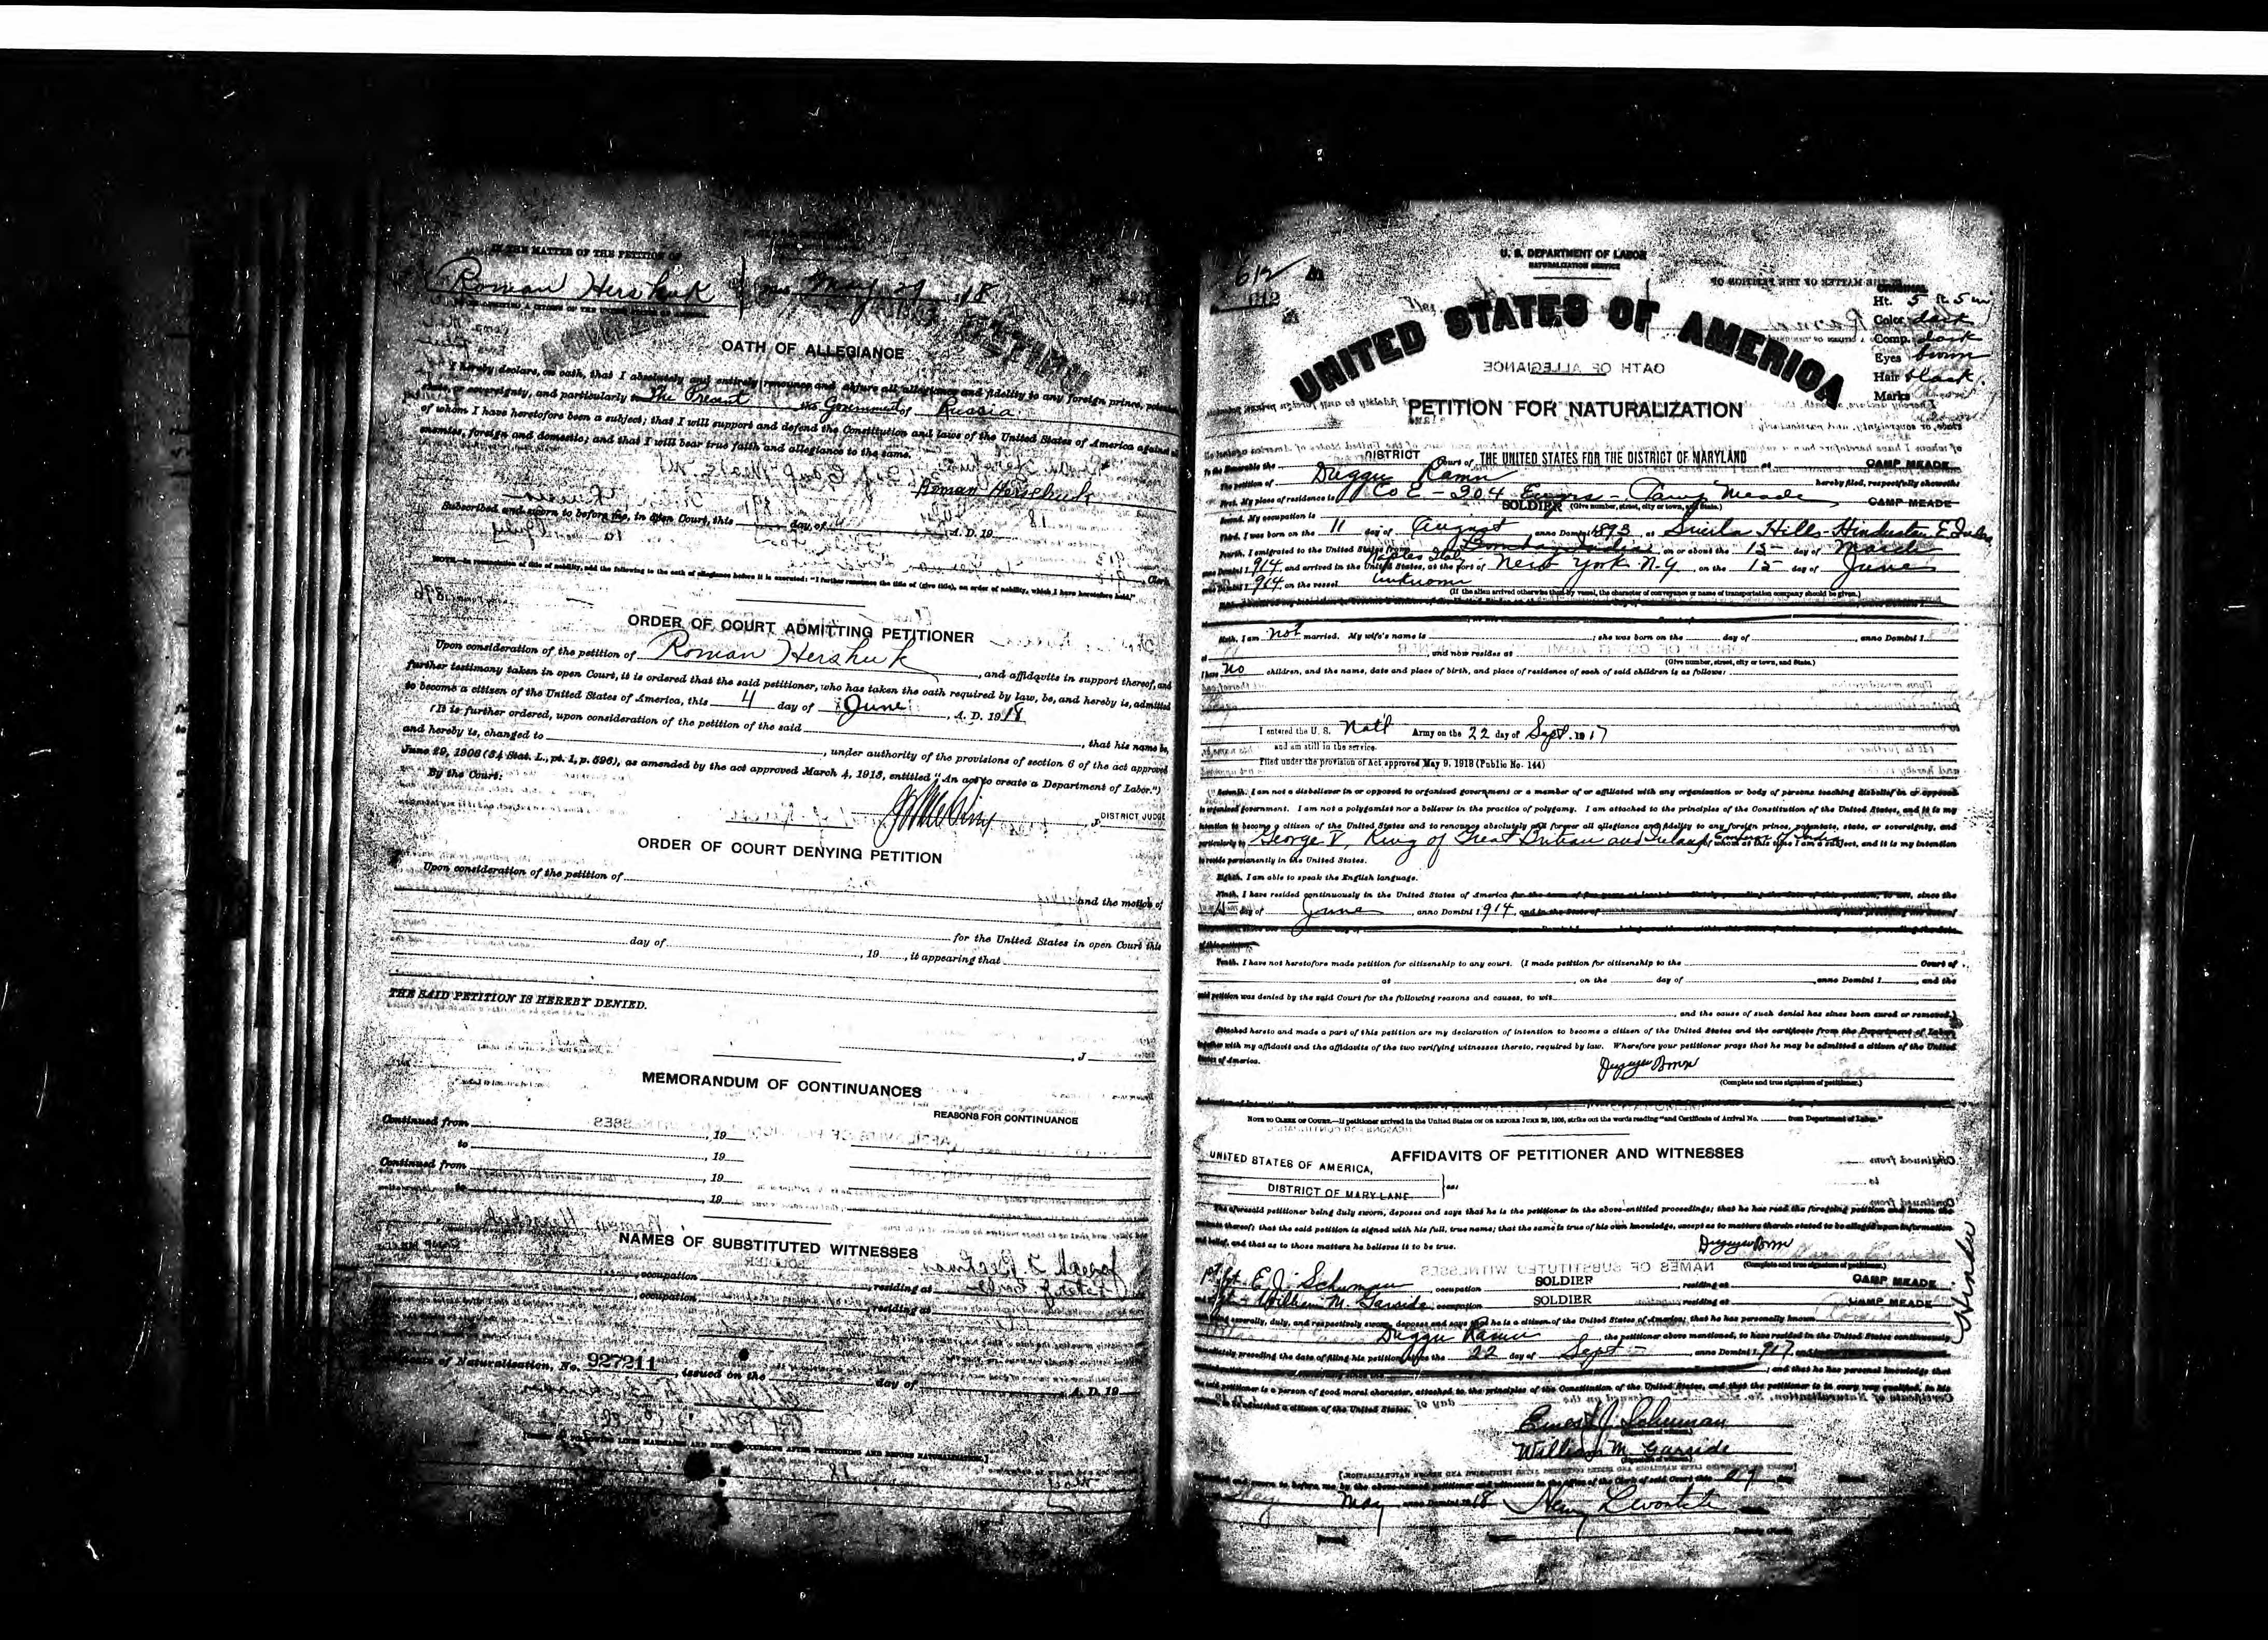 IN THE MATTER OF THE PETITION OF
Roman Hershuk
May 29 18
OATH OF ALLEGIANCE
I hereby declare, on oath, that I absolutely and entirely renounce and abjure all allegiance and fidelity to any foreign prince, potentate,
state, or sovereignty, and particularly to The Present Government of Russia
of whom I have heretofore been a subject; that I will support and defend the Constitution and laws of the United States of America against all
enemies, foreign and domestic; and that I will bear true faith and allegiance to the same.
Roman Hershuk
Subscribed and sworn to before me, in open Court, this day of A. D. 19
Clerk.
NOTE.—In renunciation of title of nobility, add the following to the oath of allegiance before it is executed: "I further renounce the title of (give title), an order of nobility, which I have heretofore held."
ORDER OF COURT ADMITTING PETITIONER
Upon consideration of the petition of Roman Hershuk, and affidavits in support thereof, and
further testimony taken in open Court, it is ordered that the said petitioner, who has taken the oath required by law, be, and hereby is, admitted
to become a citizen of the United States of America, this 4 day of June, A. D. 1918
(It is further ordered, upon consideration of the petition of the said , that his name be,
and hereby is, changed to , under authority of the provisions of section 6 of the act approved
June 29, 1906 (34 Stat. L., pt. 1, p. 596), as amended by the act approved March 4, 1913, entitled "An act to create a Department of Labor.")
By the Court:
J. DISTRICT JUDGE
ORDER OF COURT DENYING PETITION
Upon consideration of the petition of
and the motion of
for the United States in open Court this
day of , 19 , it appearing that
THE SAID PETITION IS HEREBY DENIED.
, J
MEMORANDUM OF CONTINUANCES
REASONS FOR CONTINUANCE
Continued from , 19
to , 19
Continued from , 19
to , 19
NAMES OF SUBSTITUTED WITNESSES
, occupation , residing at
, occupation , residing at
Certificate of Naturalization, No. 927211, issued on the day of , A. D. 19
612
612
U. S. DEPARTMENT OF LABOR
NATURALIZATION SERVICE
ORIGINAL
UNITED STATES OF AMERICA
Ht. 5 ft. 5 in
Color dark
Comp. dark
Eyes brown
Hair black.
Marks
PETITION FOR NATURALIZATION
To the Honorable the DISTRICT Court of THE UNITED STATES FOR THE DISTRICT OF MARYLAND at CAMP MEADE
The petition of Duggu Ramn hereby filed, respectfully showeth:
First. My place of residence is Co E - 304 Engrs - Camp Meade CAMP MEADE
(Give number, street, city or town, and State.)
Second. My occupation is SOLDIER
Third. I was born on the 11 day of August anno Domini 1893, at Simla Hills Hindustan E. Indies
Fourth. I emigrated to the United States from Bombay India, on or about the 15 day of March
Naples Italy
anno Domini 1914 and arrived in the United States, at the port of New York N.Y., on the 15 day of June
anno Domini 1914 on the vessel unknown
(If the alien arrived otherwise than by vessel, the character of conveyance or name of transportation company should be given.)
Sixth. I am not married. My wife's name is ; she was born on the day of , anno Domini 1
at , and now resides at
(Give number, street, city or town, and State.)
I have no children, and the name, date and place of birth, and place of residence of each of said children is as follows:
I entered the U. S. Natl Army on the 22 day of Sept. 1917
and am still in the service.
Filed under the provision of Act approved May 9, 1918 (Public No. 144)
Seventh. I am not a disbeliever in or opposed to organized government or a member of or affiliated with any organization or body of persons teaching disbelief in or opposed
to organized government. I am not a polygamist nor a believer in the practice of polygamy. I am attached to the principles of the Constitution of the United States, and it is my
intention to become a citizen of the United States and to renounce absolutely and forever all allegiance and fidelity to any foreign prince, potentate, state, or sovereignty, and
particularly to George V, King of Great Britain and Ireland, Emperor of India of whom at this time I am a subject, and it is my intention
to reside permanently in the United States.
Eighth. I am able to speak the English language.
Ninth. I have resided continuously in the United States of America for the term of five years at least immediately preceding the date of this petition, to wit, since the
15 day of June, anno Domini 1914, and in the State of
of this petition.
Tenth. I have not heretofore made petition for citizenship to any court. (I made petition for citizenship to the Court of
at , on the day of , anno Domini 1 , and the
said petition was denied by the said Court for the following reasons and causes, to wit
, and the cause of such denial has since been cured or removed.)
Attached hereto and made a part of this petition are my declaration of intention to become a citizen of the United States and the certificate from the Department of Labor,
together with my affidavit and the affidavits of the two verifying witnesses thereto, required by law. Wherefore your petitioner prays that he may be admitted a citizen of the United
States of America.
(Complete and true signature of petitioner.)
NOTE TO CLERK OF COURT.—If petitioner arrived in the United States ON OR BEFORE JUNE 29, 1906, strike out the words reading "and Certificate of Arrival No. from Department of Labor."
AFFIDAVITS OF PETITIONER AND WITNESSES
UNITED STATES OF AMERICA,
DISTRICT OF MARYLAND ss:
The aforesaid petitioner being duly sworn, deposes and says that he is the petitioner in the above-entitled proceedings; that he has read the foregoing petition and knows the
contents thereof; that the said petition is signed with his full, true name; that the same is true of his own knowledge, except as to matters therein stated to be alleged upon information
and belief, and that as to those matters he believes it to be true.
(Complete and true signature of petitioner.)
E. J. Schuman, occupation SOLDIER, residing at CAMP MEADE
and William M. Garside, occupation SOLDIER, residing at CAMP MEADE
each being severally, duly, and respectively sworn, deposes and says that he is a citizen of the United States of America; that he has personally known
Duggu Ramn, the petitioner above mentioned, to have resided in the United States continuously
immediately preceding the date of filing his petition, since the 22 day of Sept, anno Domini 1917
; and that he has personal knowledge that
the said petitioner is a person of good moral character, attached to the principles of the Constitution of the United States, and that the petitioner is in every way qualified, in his
opinion, to be admitted a citizen of the United States.
Ernest J Schuman
William M. Garside
Subscribed and sworn to before me by the above-named petitioner and witnesses in the office of the Clerk of said Court this 29 day
May anno Domini 1918
Hindu